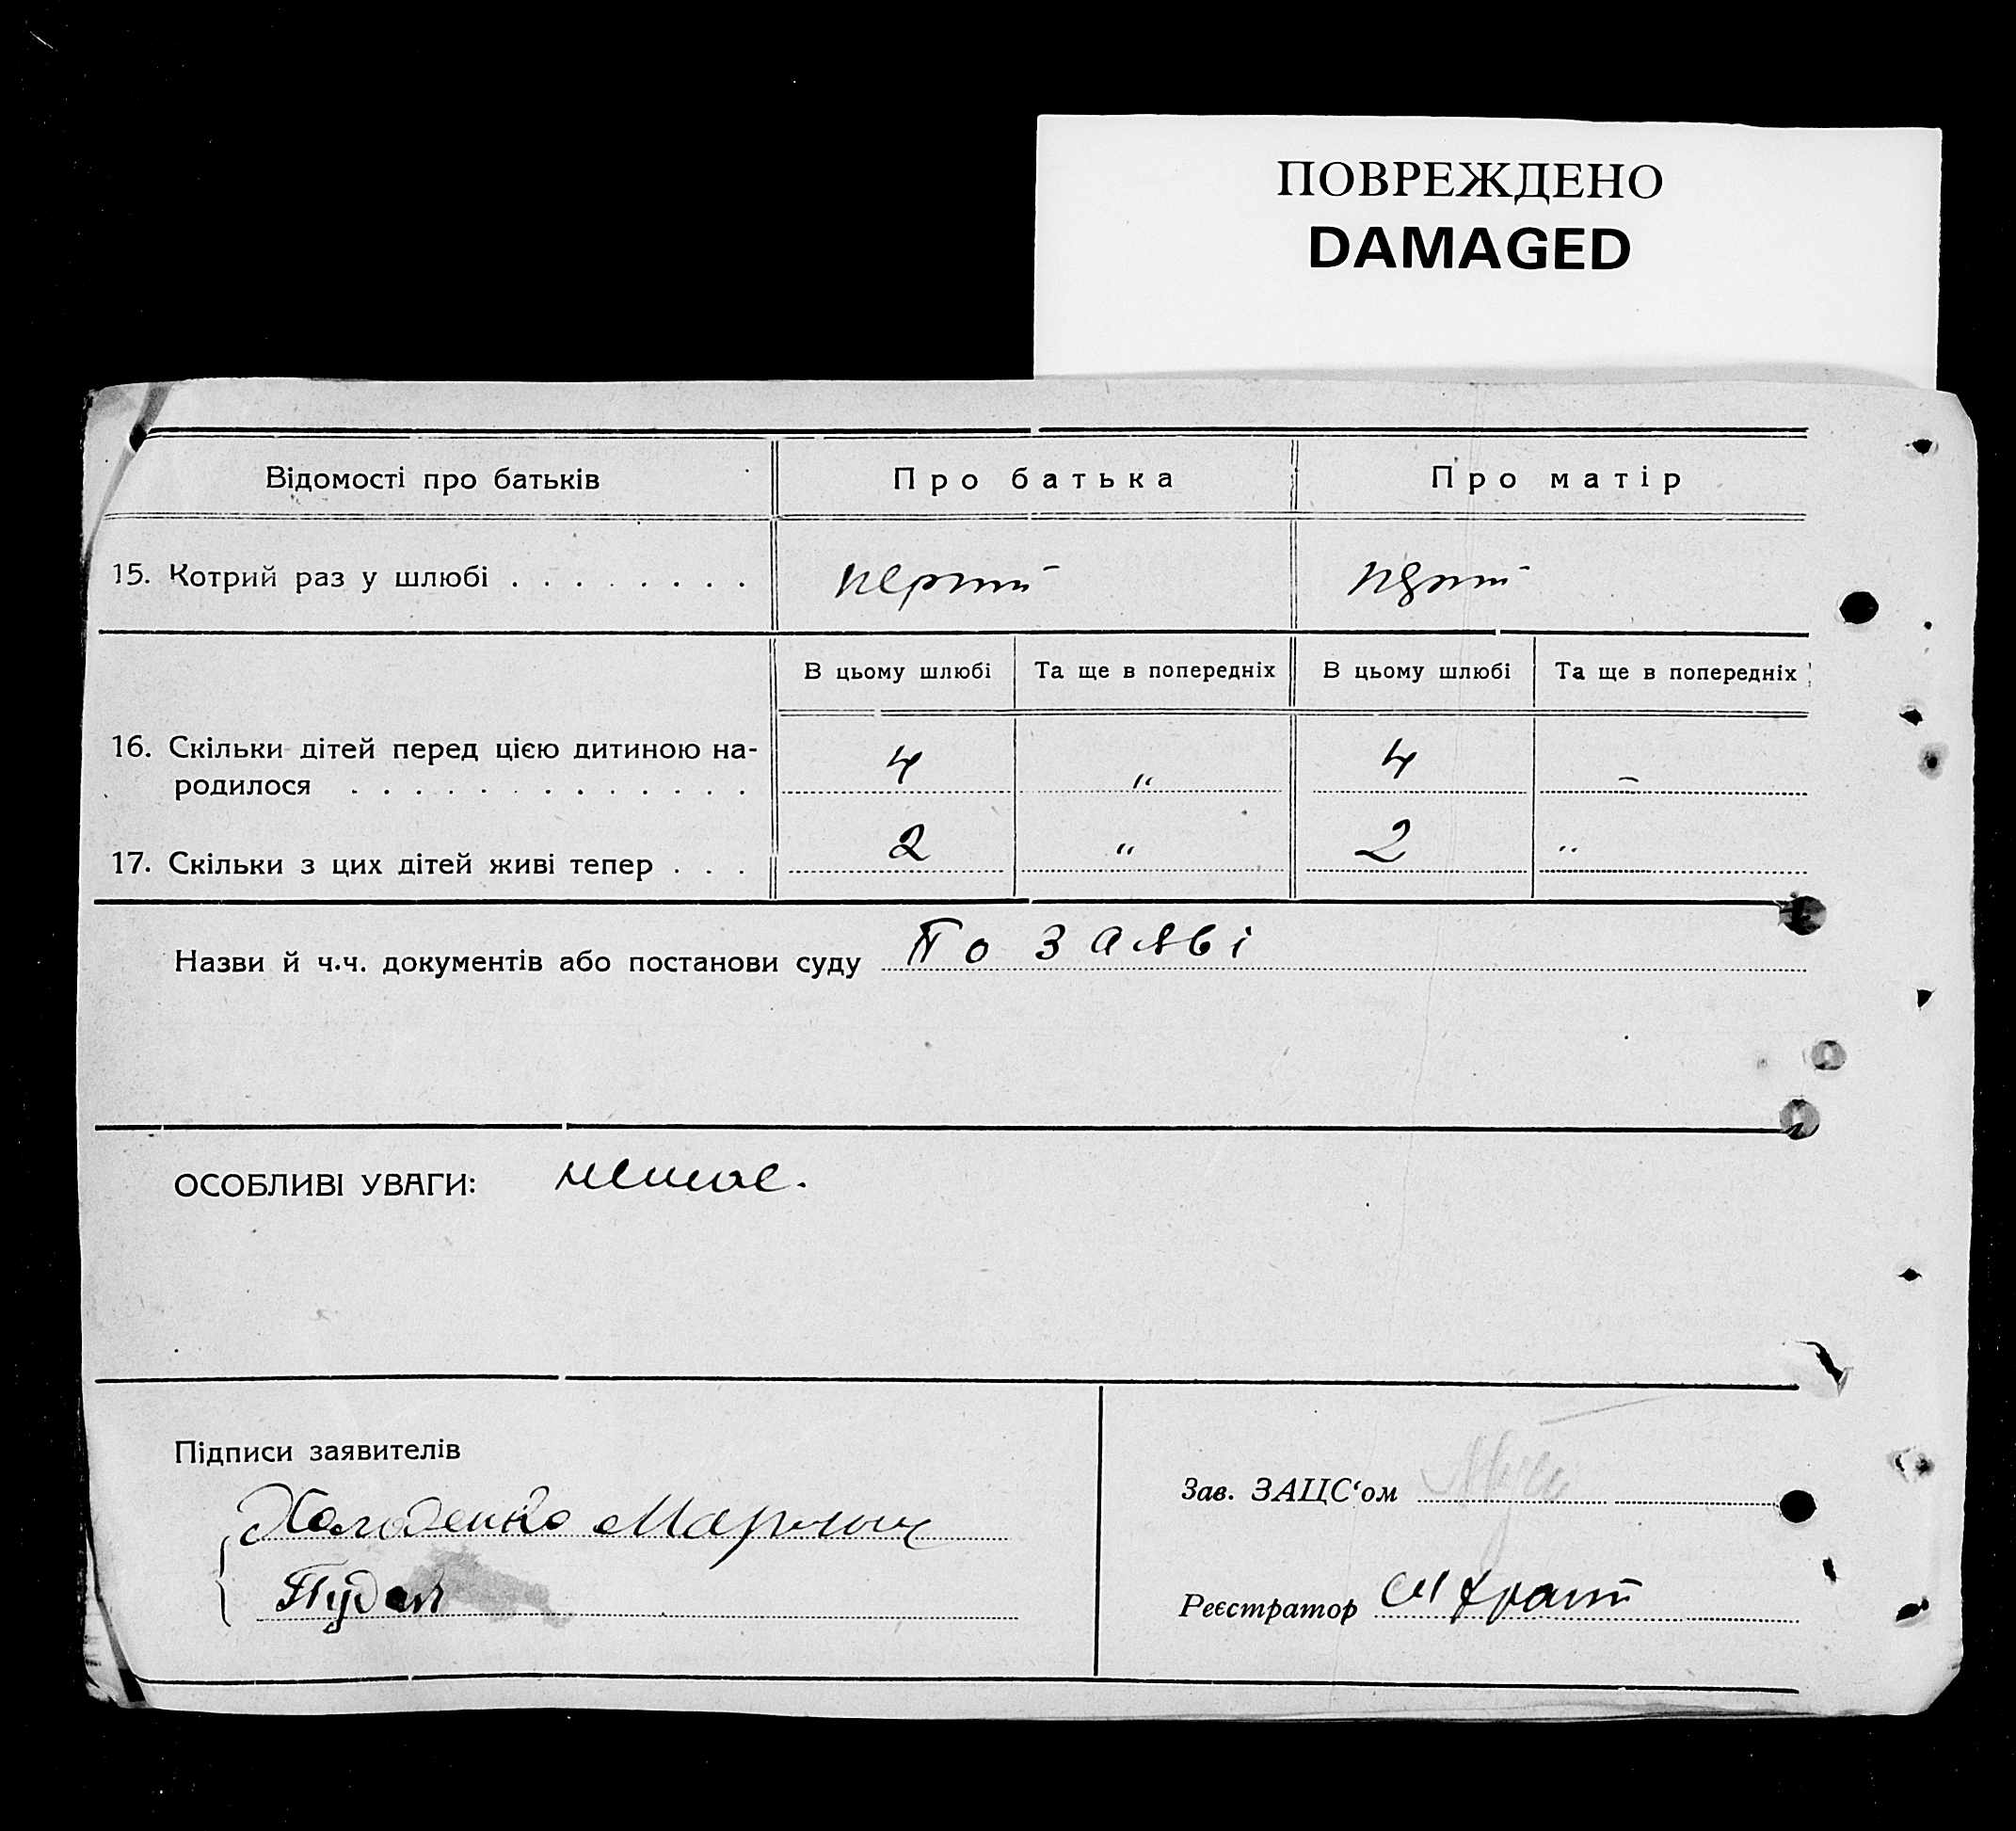 ПОВРЕЖДЕНО
DAMAGED
Відомості про батьків Про батька Про матір
15. Котрий раз у шлюбі . . . . . . . . перший
В цьому шлюбі Та ще в попередніх В цьому шлюбі Та ще в попередніх
16. Скільки дітей перед цією дитиною на-
родилося . . . . . . . . . . . . . 4 " 4 –
17. Скільки з цих дітей живі тепер . . . 2 " 2 "
Назви й ч.ч. документів або постанови суду По заяві
ОСОБЛИВІ УВАГИ: немає.
Підписи заявителів
Холоденко
Зав. ЗАЦС‘ом
Реєстратор